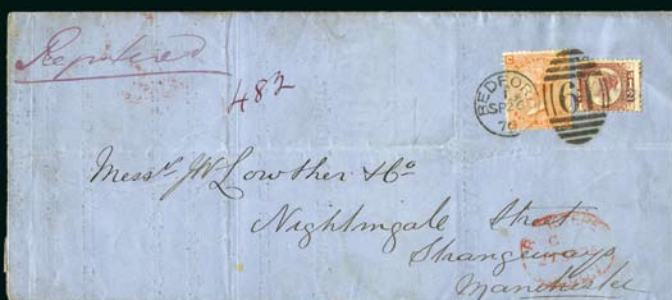 Registered
482
BEDFORD
SP 26
76
6
1/2
Mess.rs JW Lowther & Co
Nightingale Street
Strangeways
Manchester